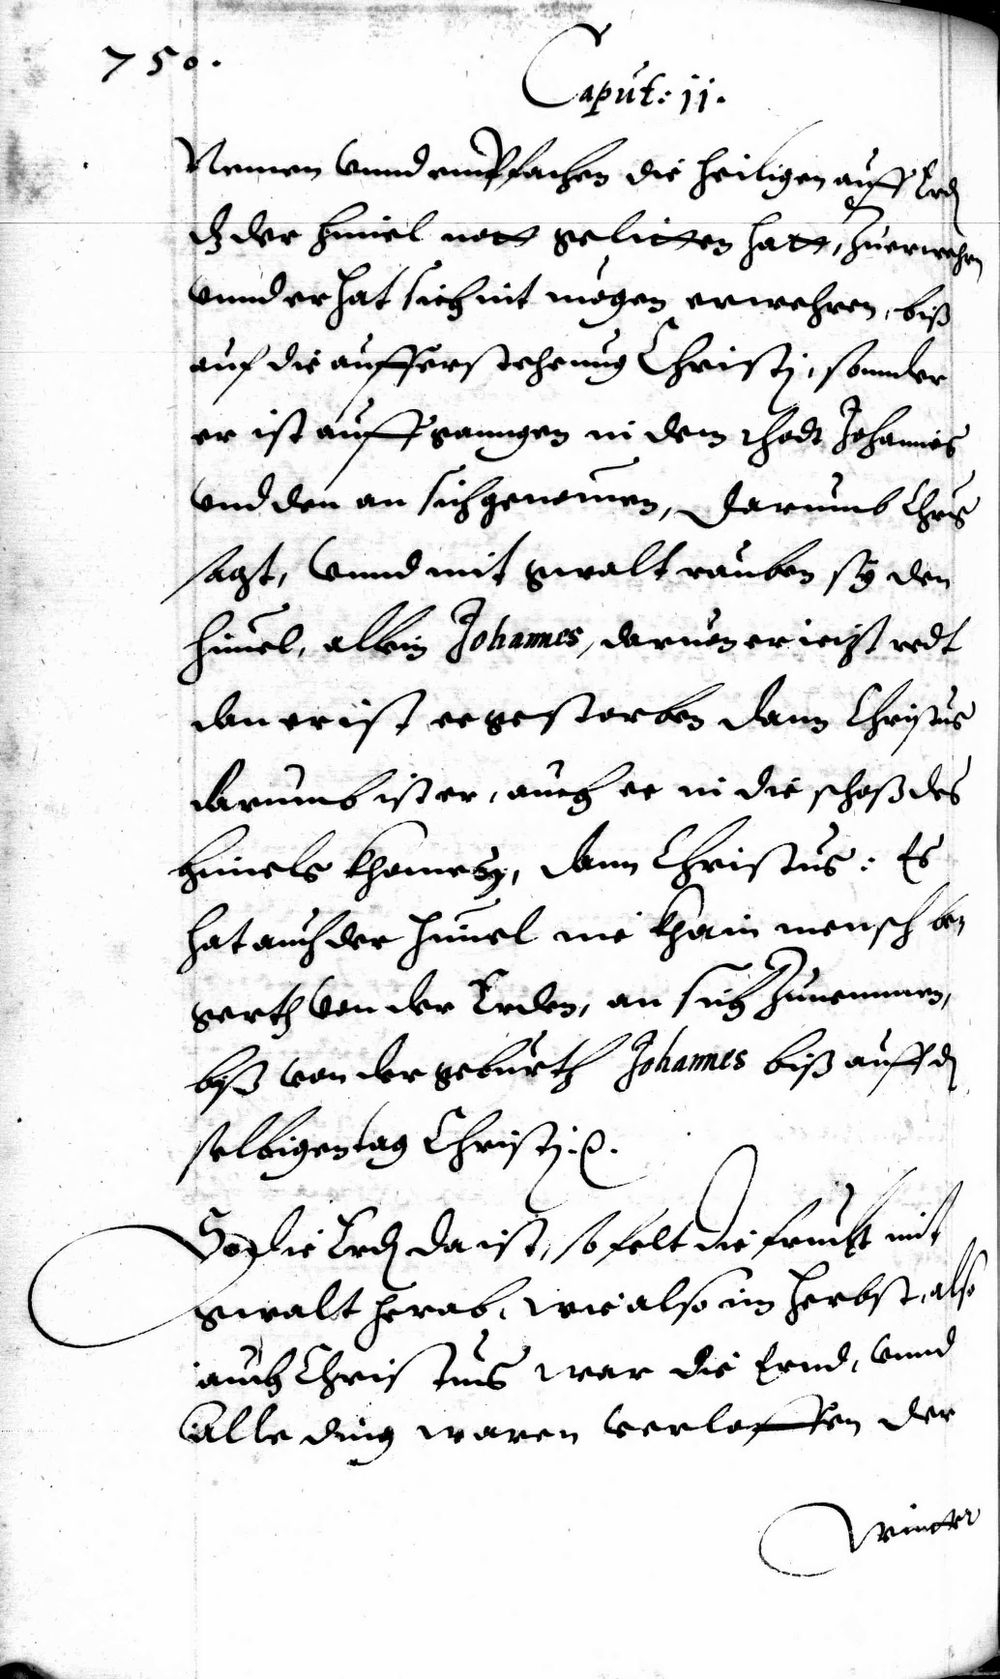 750.
Caput: 11.
Nemen vnnd empfachen die heiligen auff Erd
dz der himel nott gelitten hatt, zuerwehrn
vnnd er hat sich nit mögen erwehren, biß
auf die aufferstehnung Christj, sonnder
er ist auffganngen in dem thodt Johannis
vnd den an sich genomen, Darumb Chrus
sagt, vnnd mit gwalt rauben sy den
himel, allein Johannes, daruon er iezt redt
dan er ist ee gestorben dann Christus
darumb ist er, auch ee in die schoß des
himels khomen, dann Christus: Es
hat auch der himel nie khain mensch be
gerth von der Erden, an sich Zunemmen,
biß von der geburth Johannes biß auff d
selbigen tag Christj.
So die Erd da ist, so felt die frucht mit
gwalt herab, wie also im herbst, also
auch Christus war die Ernd, vnnd
Alle ding waren verloffen der
winter